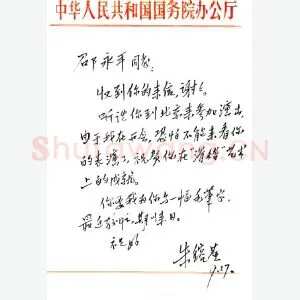 中华人民共和国国务院办公厅
邵永平同志:
收到你的来信,谢谢。
听说你到北京来参加演出,
由于我在开会,恐怕不能来看你
的表演了,祝贺你在滑稽艺术
上的成就。
你要我为你写一幅毛笔字,
最近
祝好
朱镕基
9.27.